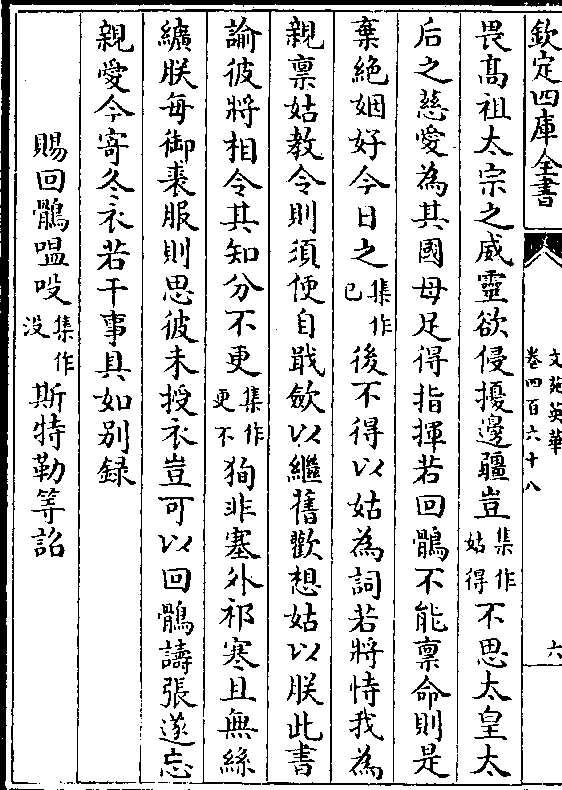 欽定四庫全書
文苑英華
卷四百六十八
六
畏髙祖太宗之威靈欲侵擾邊疆豈集作姑得不思太皇太
后之慈愛為其國母足得指揮若回鶻不能稟命則是
棄絶姻好今日之集作已後不得以姑為詞若將恃我為
親稟姑教令則須便自戢斂以繼舊歡想姑以朕此書
諭彼將相令其知分不更集作更不徇非塞外祁寒且無絲
纊朕每御裘服則思彼未授衣豈可以回鶻譸張遂忘
親愛今寄冬衣若干事具如别録
賜回鶻嗢㕞集作没斯特勒等詔